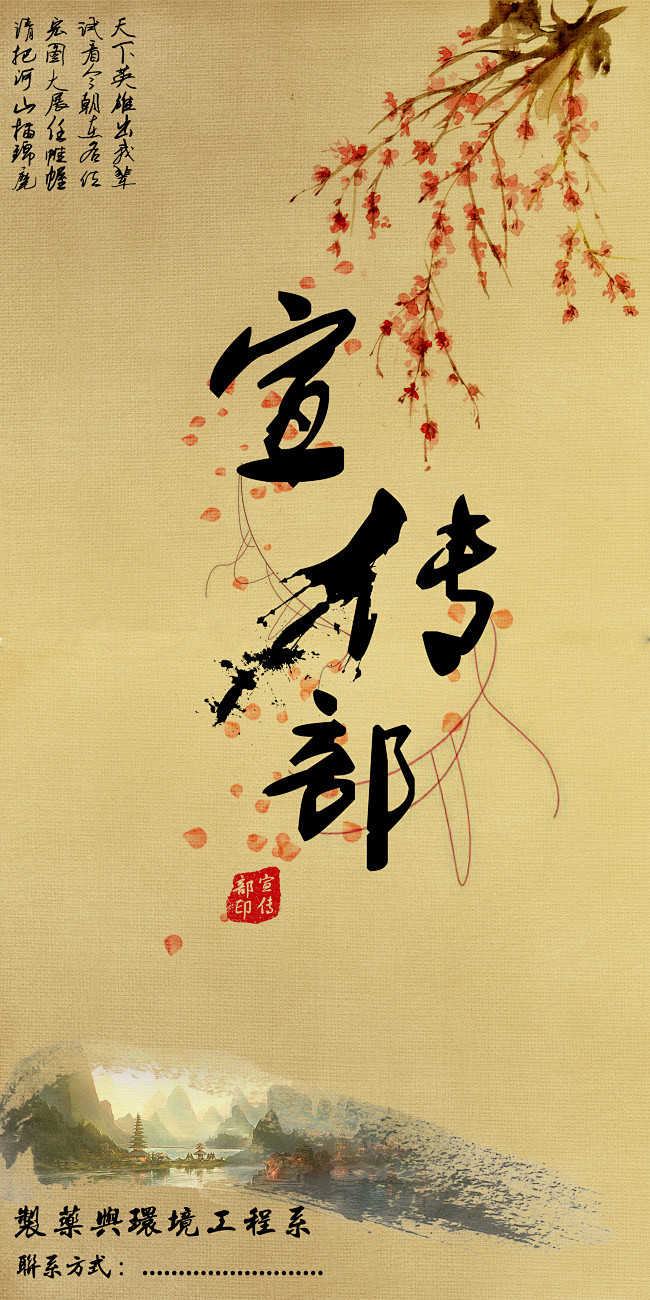 天下英雄出我辈
试看今朝在各位
宏图大展任帷幄
请把河山描锦
宣
传
部
宣传
部印
製藥與環境工程系
聯系方式：........................